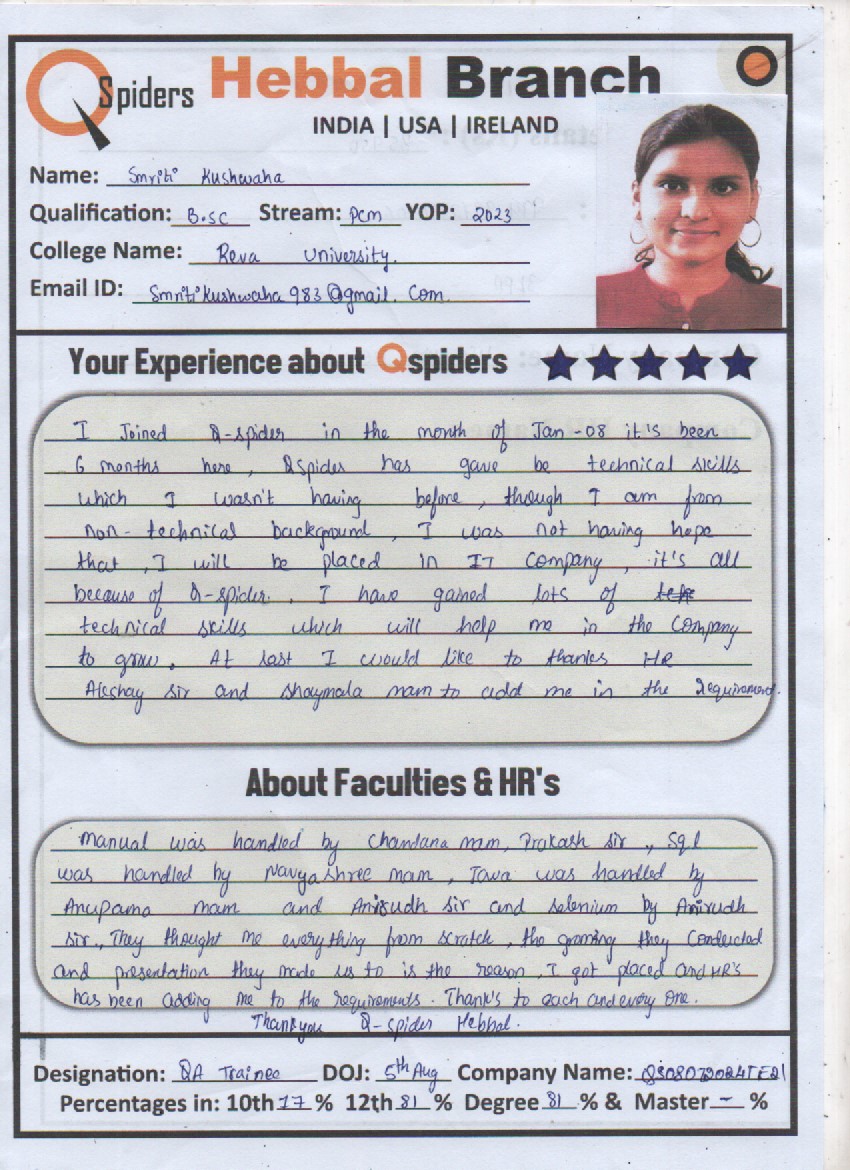 QSpiders Hebbal Branch
INDIA | USA | IRELAND
Name: Smriti Kushwaha
Qualification: B.sc Stream: PCM YOP: 2023
College Name: Reva University.
Email ID: Smritikushwaha983@gmail.com.
Your Experience about Qspiders
I Joined Q-spider in the month of Jan-08 it's been
6 months here, Qspider has gave be technical skills
which I wasn't having before, though I am from
non-technical background, I was not having hope
that, I will be placed in IT company, it's all
because of Q-spider., I have gained lots of
technical skills which will help me in the company
to grow. At last I would like to thanks HR
Akshay sir and shaymala mam to add me in the requirement.
About Faculties & HR's
manual was handled by Chandana mam, Prakash sir, Sql
was handled by Navyashree mam, Java was handled by
Anupama mam and Anirudh sir and selenium by Anirudh
sir., They thought me everything from scratch, the groming they conducted
and presentation they made us to is the reason, I got placed and HR's
has been adding me to the requirements. Thank's to each and every one.
Thankyou Q-spider Hebbal.
Designation: QA Trainee DOJ: 5th Aug Company Name:
Percentages in: 10th 77% 12th 81% Degree 81% & Master - %